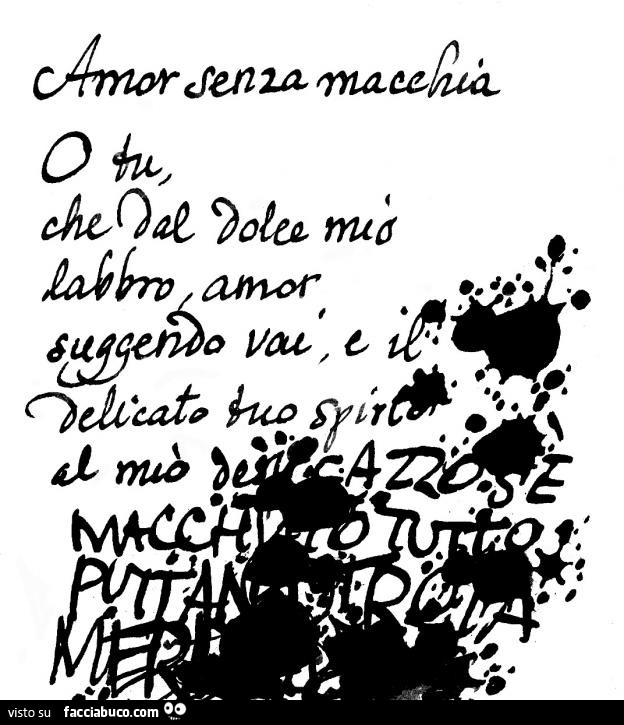 Amor senza macchia
O tu,
che dal dolce mio
labbro, amor
suggendo vai, e il
delicato tuo spirto
al mio CAZZO SE
TUTTO!
TROIA
visto su facciabuco.com